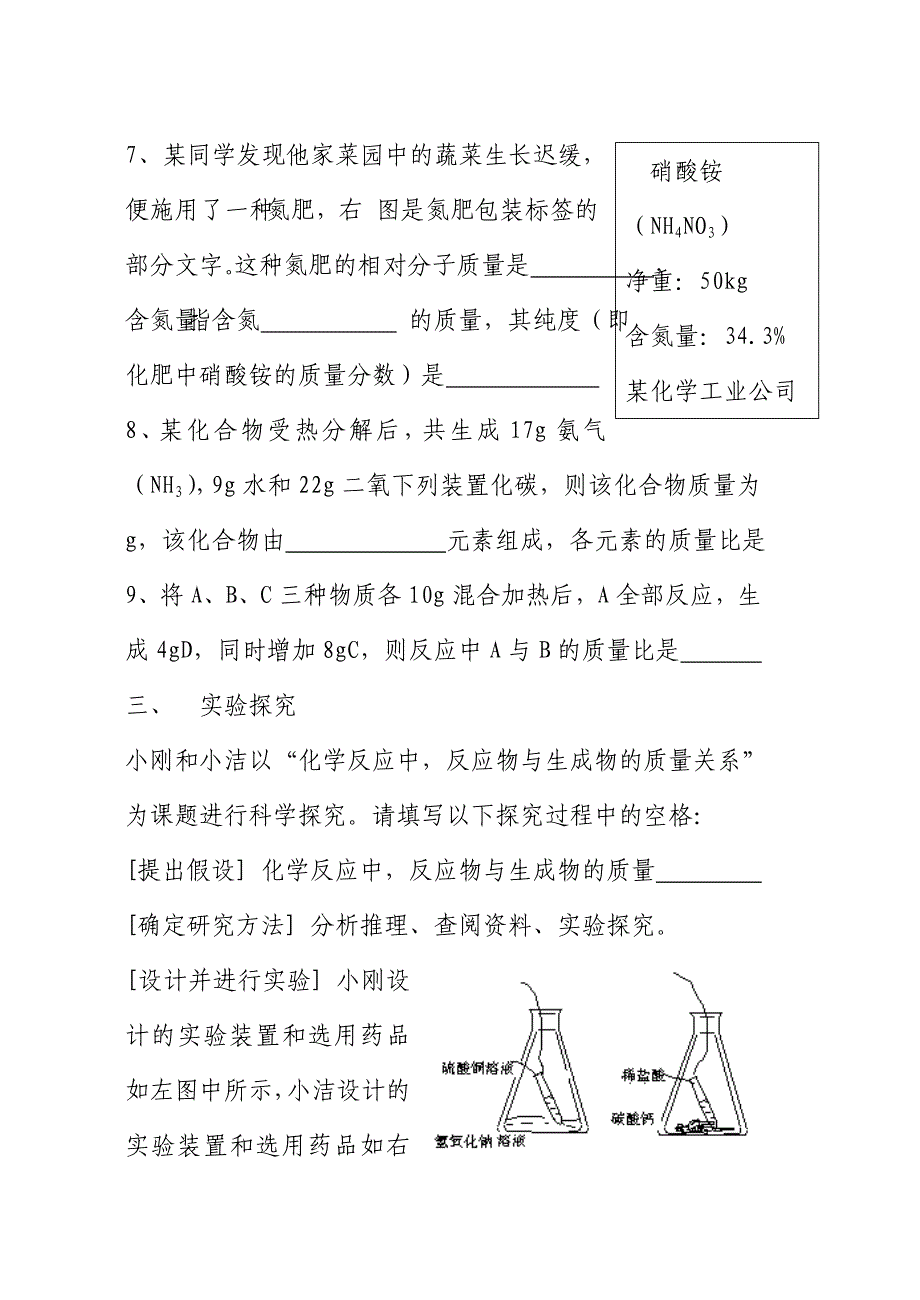 7、某同学发现他家菜园中的蔬菜生长迟缓，
便施用了一种氮肥，右 图是氮肥包装标签的
部分文字。这种氮肥的相对分子质量是__________，
含氮量指含氮___________ 的质量，其纯度（即
化肥中硝酸铵的质量分数）是____________
硝酸铵
（NH₄NO₃）
净重：50kg
含氮量：34.3%
某化学工业公司
8、某化合物受热分解后，共生成 17g 氨气
（NH₃），9g 水和 22g 二氧下列装置化碳，则该化合物质量为
g，该化合物由_____________元素组成，各元素的质量比是
9、将 A、B、C 三种物质各 10g 混合加热后，A 全部反应，生
成 4gD，同时增加 8gC，则反应中 A 与 B 的质量比是______
三、 实验探究
小刚和小洁以“化学反应中，反应物与生成物的质量关系”
为课题进行科学探究。请填写以下探究过程中的空格：
[提出假设] 化学反应中，反应物与生成物的质量________
[确定研究方法] 分析推理、查阅资料、实验探究。
[设计并进行实验] 小刚设
计的实验装置和选用药品
如左图中所示，小洁设计的
实验装置和选用药品如右
硫酸铜溶液
氢氧化钠溶液
稀盐酸
碳酸钙